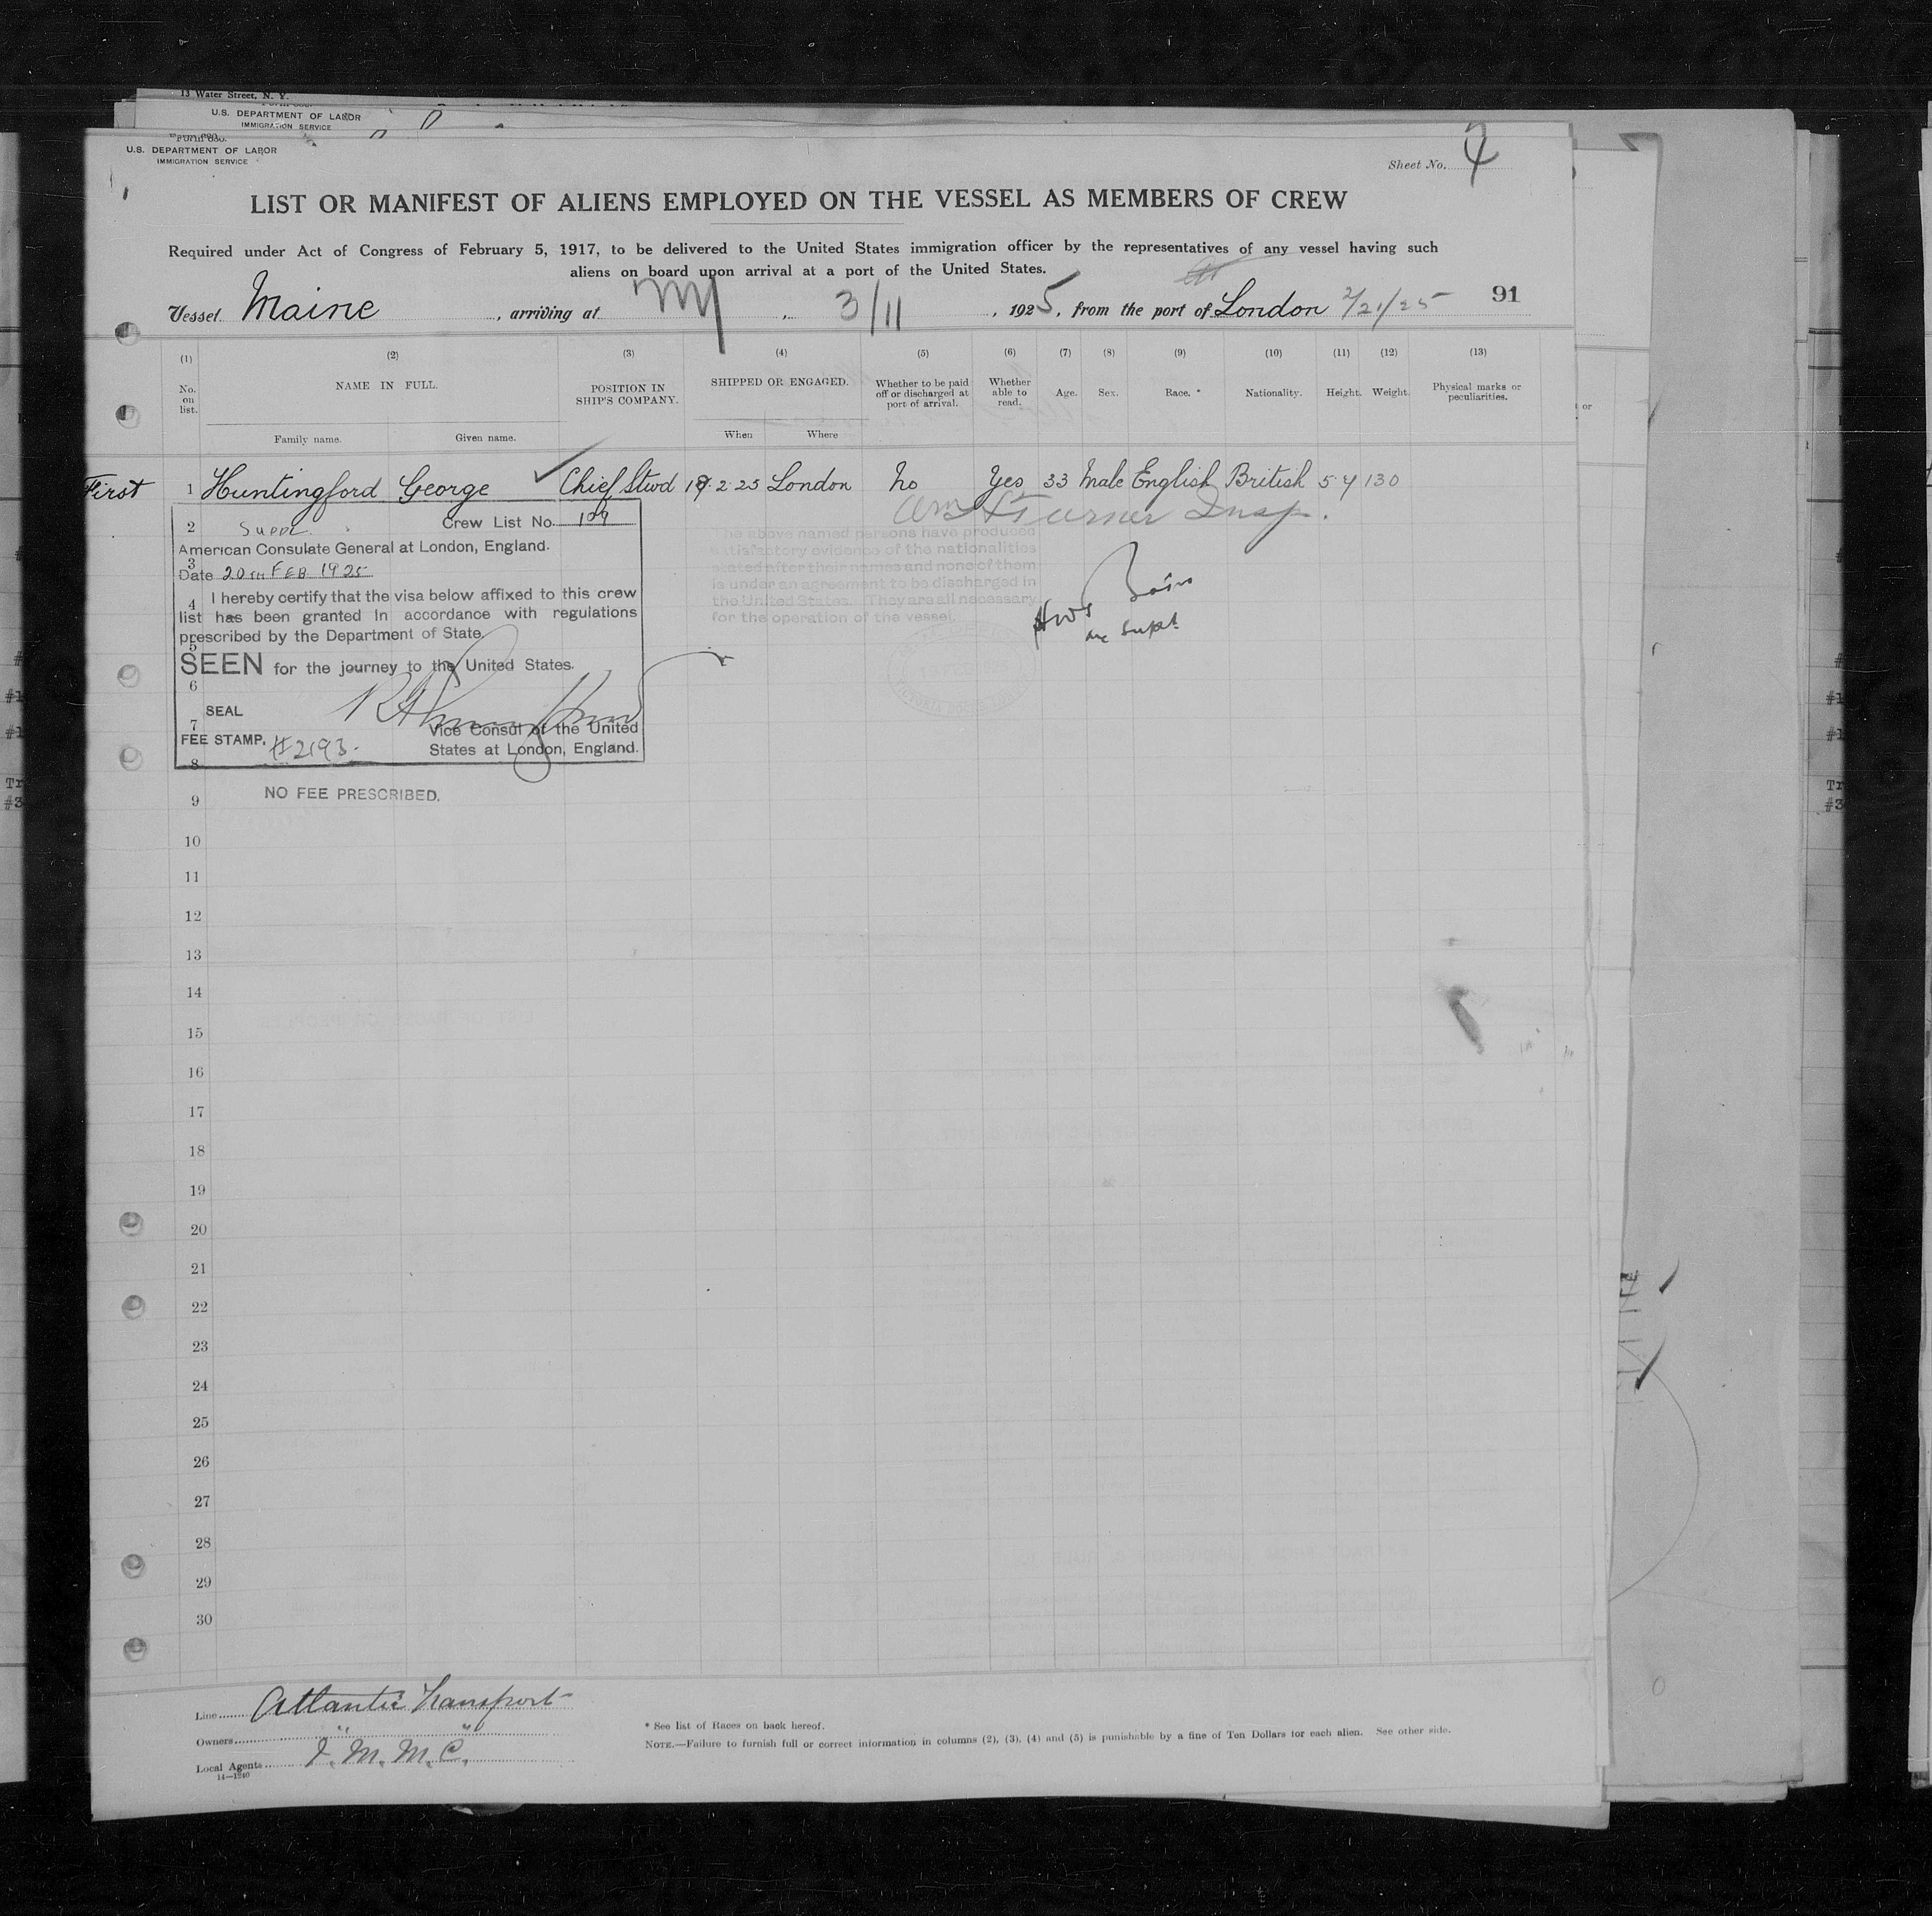 13 Water Street, N. Y.
U.S. DEPARTMENT OF LABOR
IMMIGRATION SERVICE
Form 680.
U.S. DEPARTMENT OF LABOR
IMMIGRATION SERVICE
Sheet No. 4
LIST OR MANIFEST OF ALIENS EMPLOYED ON THE VESSEL AS MEMBERS OF CREW
Required under Act of Congress of February 5, 1917, to be delivered to the United States immigration officer by the representatives of any vessel having such
aliens on board upon arrival at a port of the United States.
Vessel Maine, arriving at NY, 3/11, 1925, from the port of London 2/21/25 91
(1) (2) (3) (4) (5) (6) (7) (8) (9) (10) (11) (12) (13)
No. on list. NAME IN FULL. POSITION IN SHIP'S COMPANY. SHIPPED OR ENGAGED. Whether to be paid off or discharged at port of arrival. Whether able to read. Age. Sex. Race. * Nationality. Height. Weight. Physical marks or peculiarities.
Family name. Given name. When Where
First 1 Huntingford George Chief Stwd 19.2.25 London No Yes 33 Male English British 5 4 130
Turner Insp.
2 Suppl. Crew List No. 109
American Consulate General at London, England.
3
Date 20TH FEB 1925
4 I hereby certify that the visa below affixed to this crew
list has been granted in accordance with regulations
prescribed by the Department of State.
5
SEEN for the journey to the United States.
6
SEAL
7 Vice Consul of the United
FEE STAMP. #2193. States at London, England.
8
The above named persons have produced
satisfactory evidence of the nationalities
stated after their names and none of them
is under an agreement to be discharged in
the United States. They are all necessary
for the operation of the vessel.
Supt
9 NO FEE PRESCRIBED.
10
11
12
13
14
15
16
17
18
19
20
21
22
23
24
25
26
27
28
29
30
Line Atlantic Transport
Owners " "
Local Agents I. M. M. C.
14—1240
* See list of Races on back hereof.
NOTE.—Failure to furnish full or correct information in columns (2), (3), (4) and (5) is punishable by a fine of Ten Dollars for each alien. See other side.